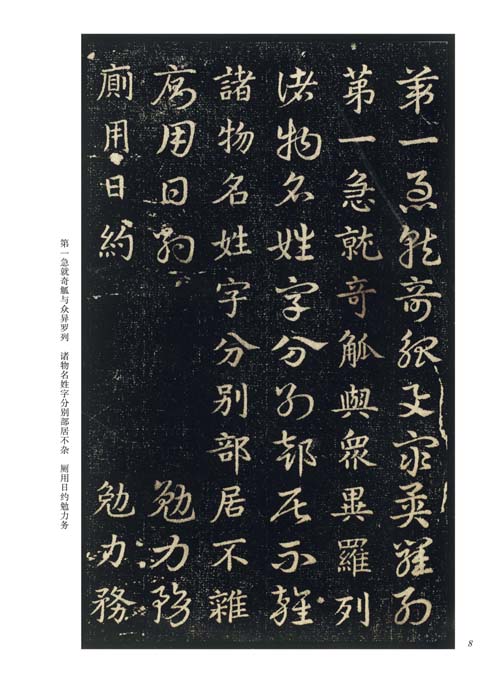 第一急就奇觚與眾異羅列
第一急就奇觚與眾異羅列
諸物名姓字分別部居不雜
諸物名姓字分別部居不雜
廁用日約 勉力務
廁用日約 勉力務
第一急就奇觚与众异罗列 诸物名姓字分别部居不杂 厕用日约勉力务
8